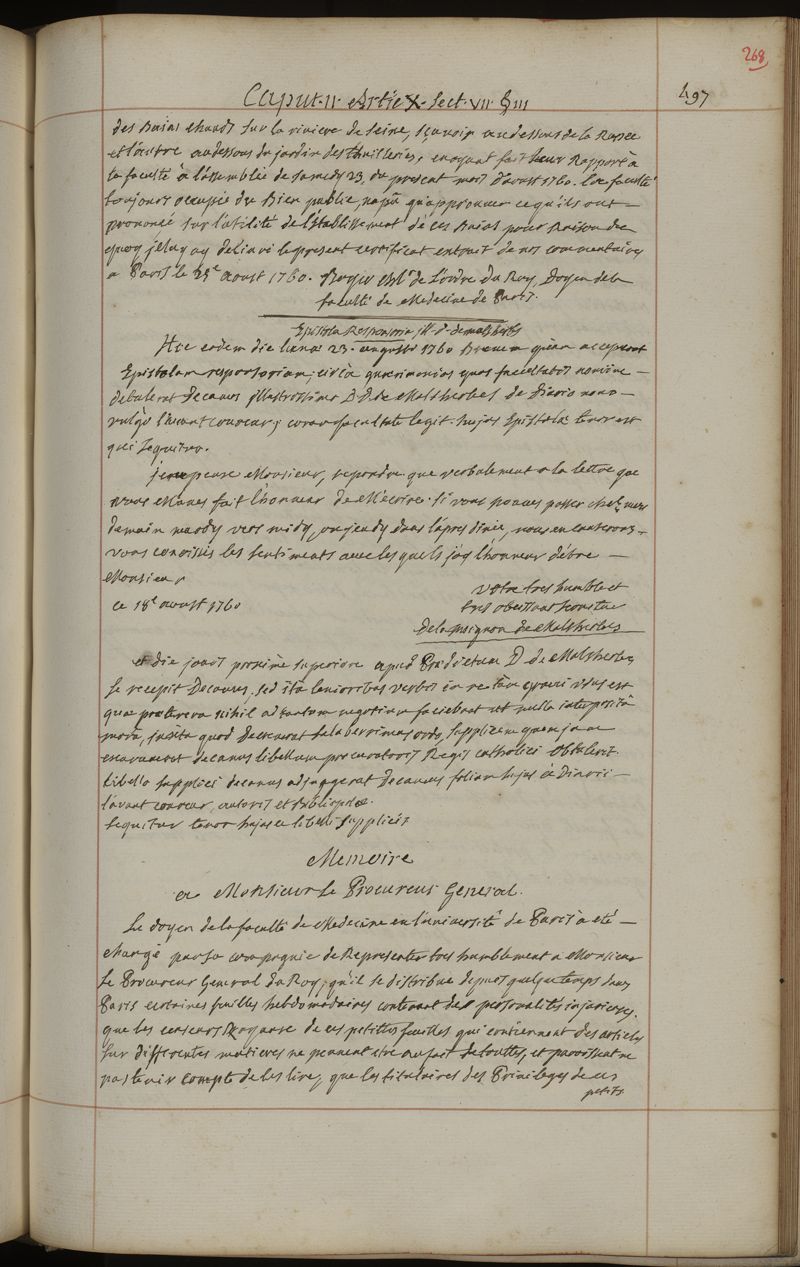 268
Caput. II. Artic. X. Sect. VII §. III
497
des Bains chauds sur la riviere de Seine, sçavoir au dessous de la Rapée
et l'autre au dessous du jardin des thuilleries, en ayant fait leur Rapport à
la faculté à l'assemblée de samedy 23. du present mois d'aoust 1760. la faculté
toujours occupée du Bien public, n'a pu qu'approuver ce qu'ils ont
prononcé sur l'utilité de l'Etablissement de ces Bains pour Raison de
quoy je luy ay delivré le present certificat extrait de nos commentaires
a Paris le 25e aoust 1760. Boyer chlr de l'ordre du Roy, Doyen de la
faculté de Medecine de Paris.
Epistola Responsoria ill. d. de malsherbes
Hac eadem die lunae 23. augusti 1760 Decanus acceperat
Epistolam responsoriam, circa quaerimonias quas facultatis nomine
detulerat decanus illustrissimo D.D. de Malsherbes de Diario
vulgo l'avant coureur; coram facultate legit. hujus Epistolae tenor est
qui sequitur.
je ne peux Monsieur, repondre que verbalement a la lettre que
vous m'avez fait l'honneur de m'ecrire. si vous pouvez passer chez moy
demain mardy vers midy, ou jeudy dans l'apres dinée, nous en causerons
vous conoissés les sentiments avec lesquels j'ay l'honneur d'être
Monsieur
votre tres humble et
ce 18e aoust 1760
tres obeissant serviteur
Delamoignon de Malsherbes
et die jovis proxime superiore apud Praedictum D. de Malsherbes
se recepit Decanus, sed ita lenioribus verbis in re tam gravi usus est
quae praeterea nihil ad tantum negotium faciebant ut nulla interposita
mora, juxta quod decreverat saluberrimus ordo, supplicem quem jam
exaraverat decanus libellum procuratori Regis catholici obtulerit.
libello supplici decanus adjunxerat Decanus folium hujus ce Diarii
l'avant coureur, autoris et Bibliopolae.
Sequitur tenor hujus ce libelli supplicis
Memoire
a Monsieur Le Procureur General.
Le doyen de la faculté de Medecine en l'université de Paris a eté
chargé par sa compagnie de Representer tres humblement a Monsieur
Le Procureur General du Roy, qu'il se distribue depuis quelque temps dans
Paris certaines feuilles hebdomadaires contenant des personalités injurieuses.
que les censeurs Royaux de ces petites feuilles qui contiennent des articles
sur differentes matieres ne peuvent etre au fait de touttes, et paroissent ne
pas tenir compte de les lire, que les titulaires des Privileges de ces
petits